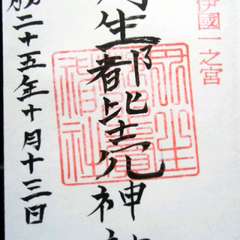 伊國一之宮
丹生都比売神社
成二十五年十月十三日